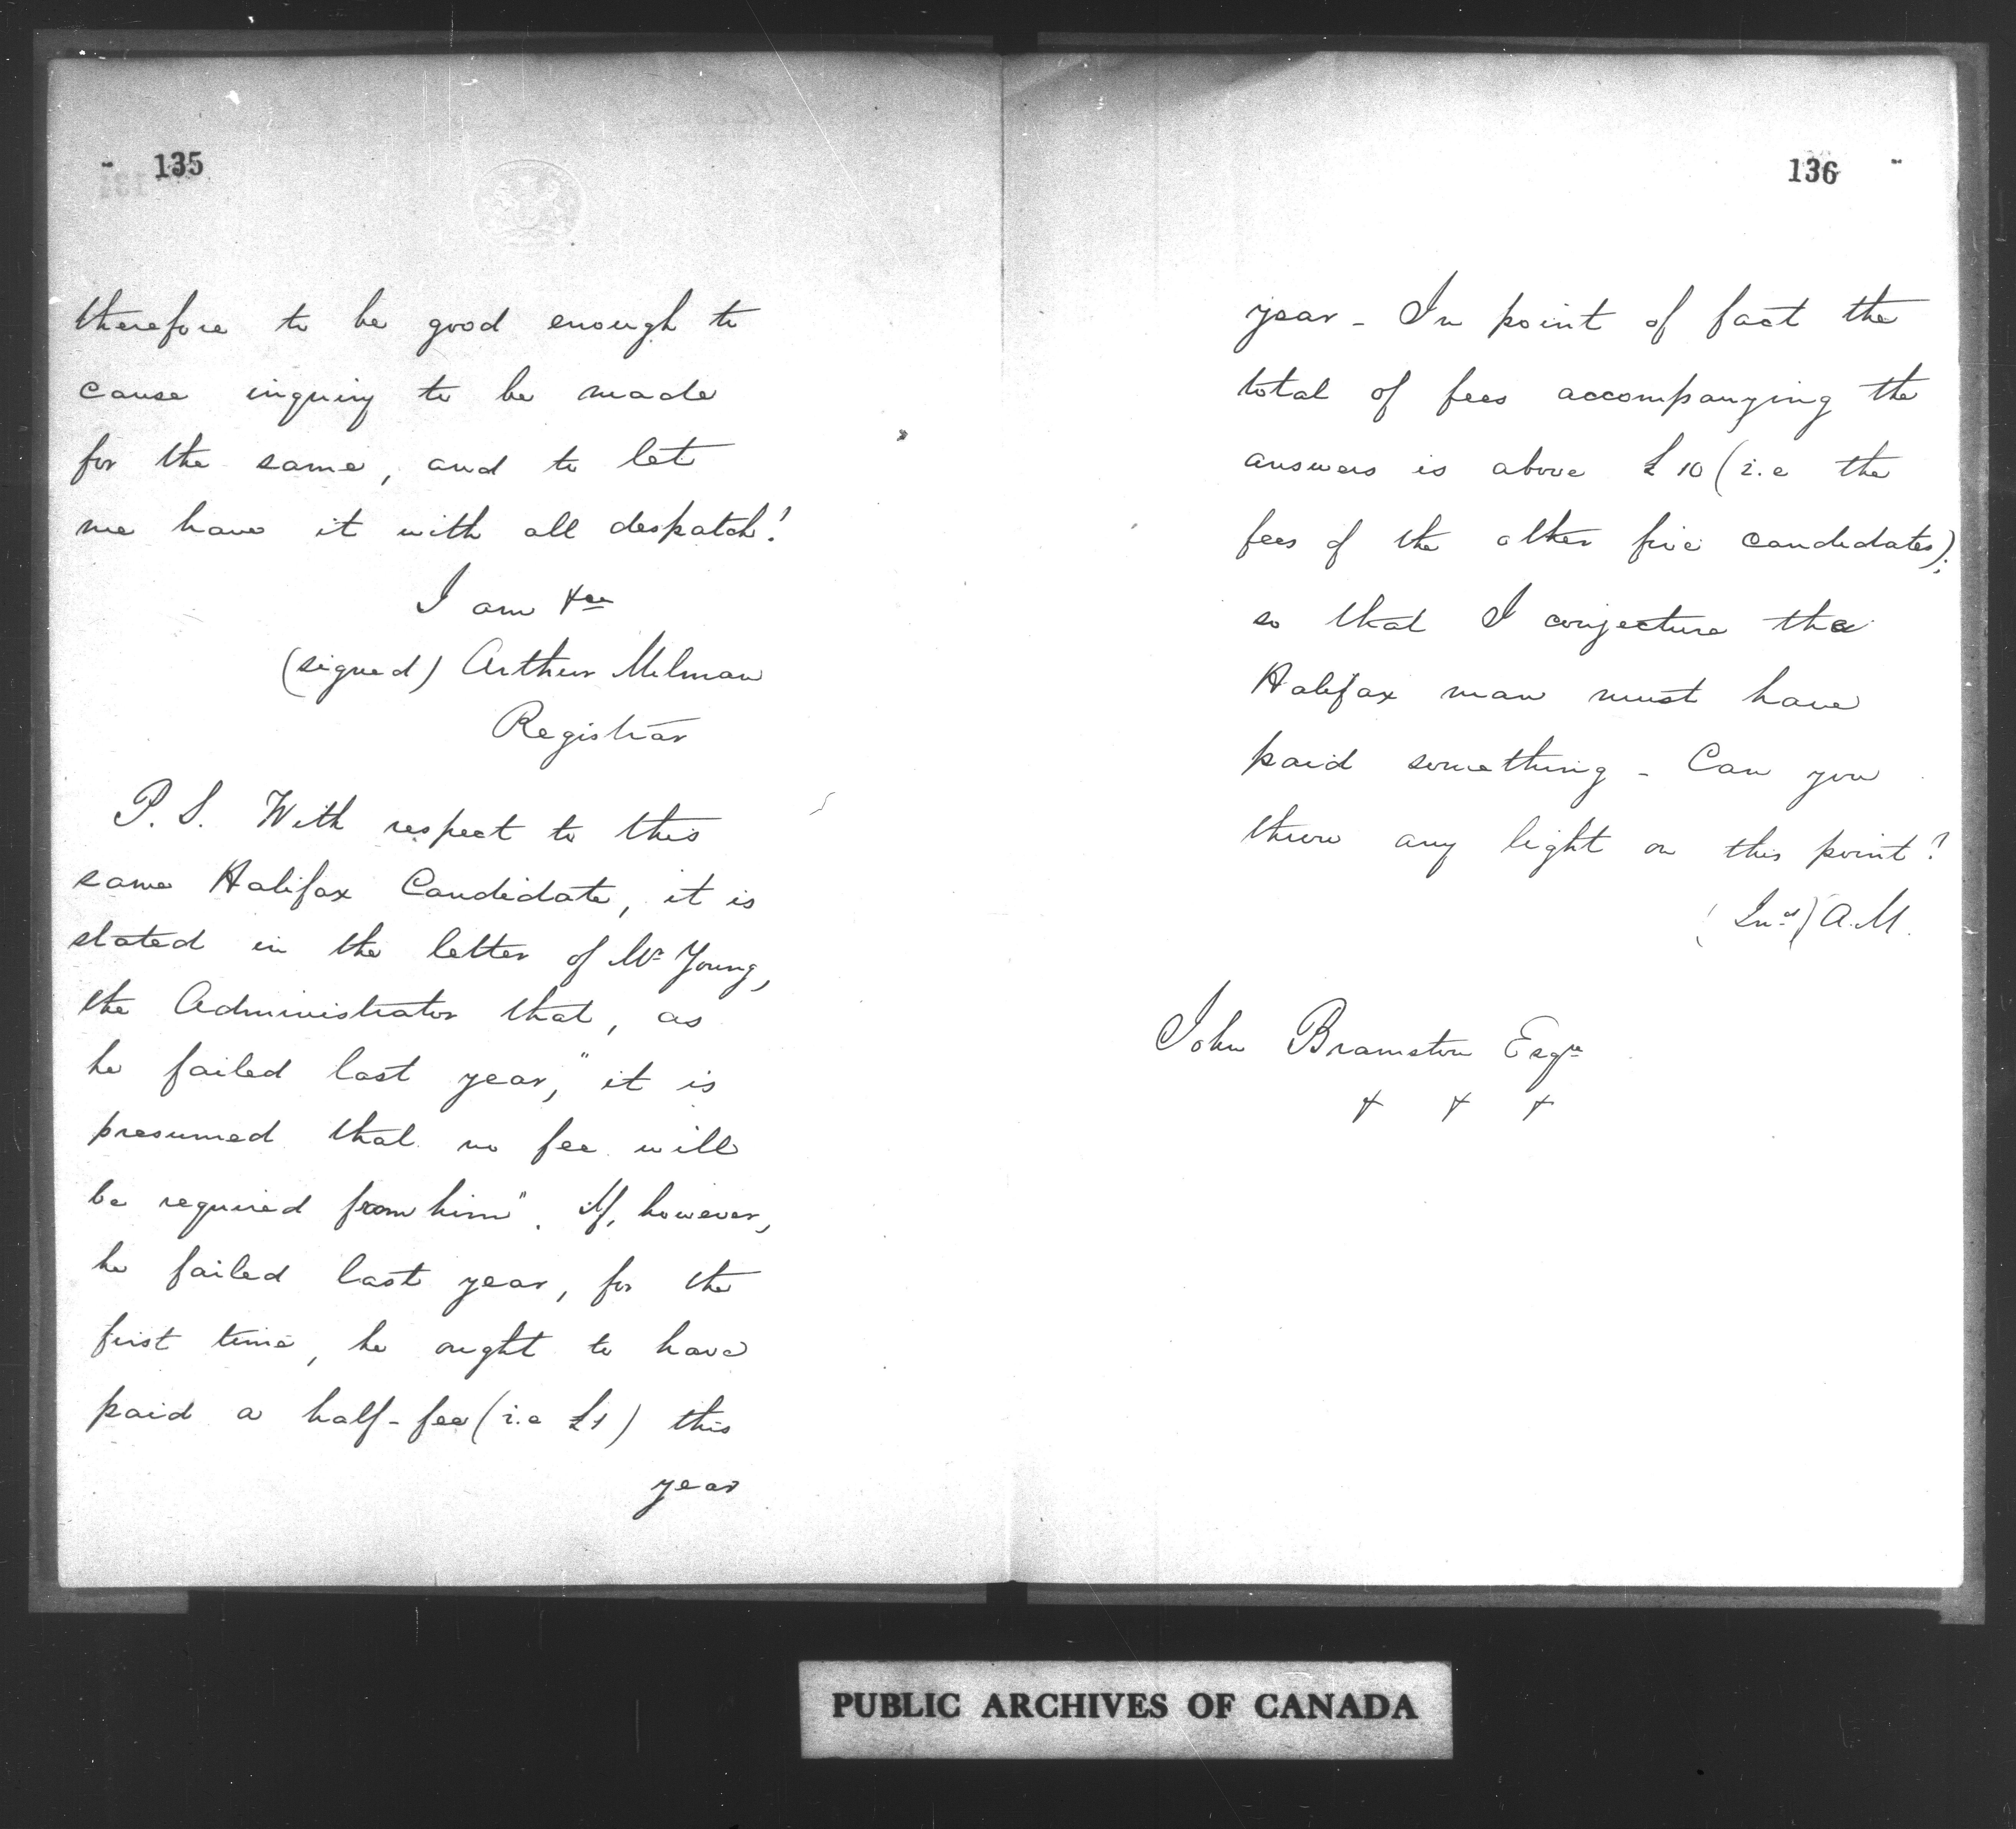 135
therefore to be good enough to
cause inquiry to be made
for the same, and to let
me have it with all despatch!
I am &ce
(signed) Arthur Milman
Registrar
P.S. With respect to this
same Halifax Candidate, it is
stated in the letter of Mr Young,
the Administrator that, as
he failed last year, "it is
presumed that no fee will
be required from him". If, however,
he failed last year, for the
first time, he ought to have
paid a half-fee (i.e £1) this
year
136
year - In point of fact the
total of fees accompanying the
answers is above £10 (i.e the
fees of the other five candidates);
so that I conjecture the
Halifax man must have
paid something - Can you
throw any light on this point?
(Ind) A.M.
John Bramston Esqre
& & &
PUBLIC ARCHIVES OF CANADA